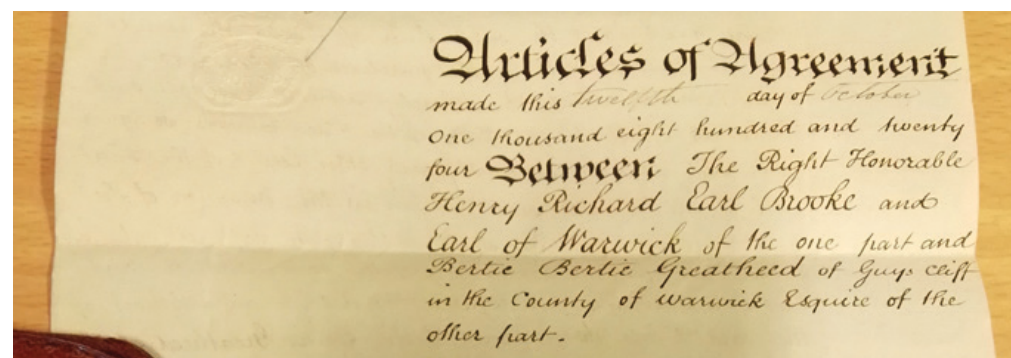 Articles of Agreement
made this twelfth day of October
one thousand eight hundred and twenty
four Between The Right Honorable
Henry Richard Earl Brooke and
Earl of Warwick of the one part and
Bertie Bertie Greatheed of Guys Cliff
in the County of Warwick Esquire of the
other part.